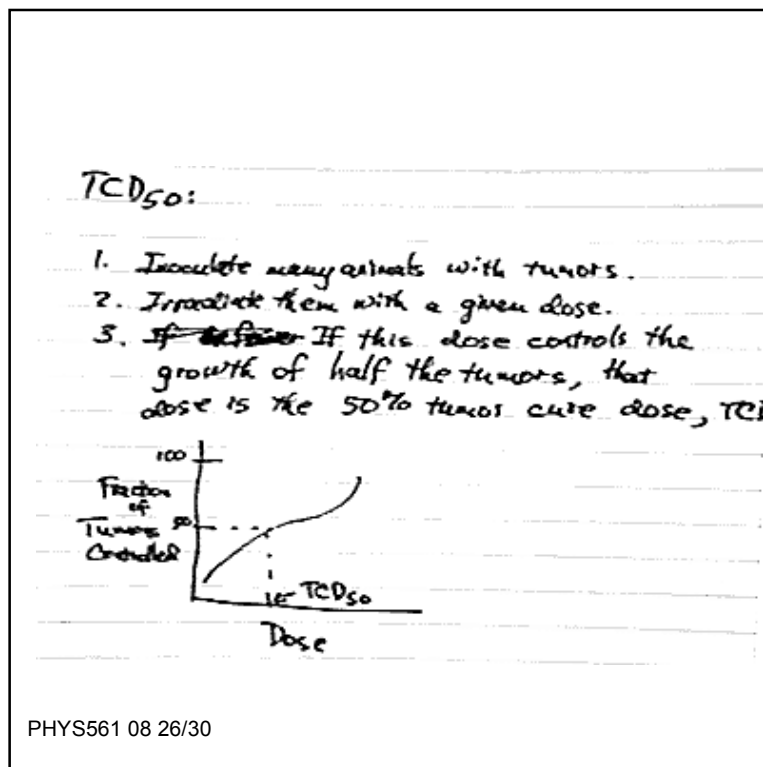 TCD50:
1. Inoculate many animals with tumors.
2. Irradiate them with a given dose.
3. If If this dose controls the
growth of half the tumors, that
dose is the 50% tumor cure dose, TCD
100
Fraction
of
Tumors 50
Controlled
TCD50
Dose
PHYS561 08 26/30